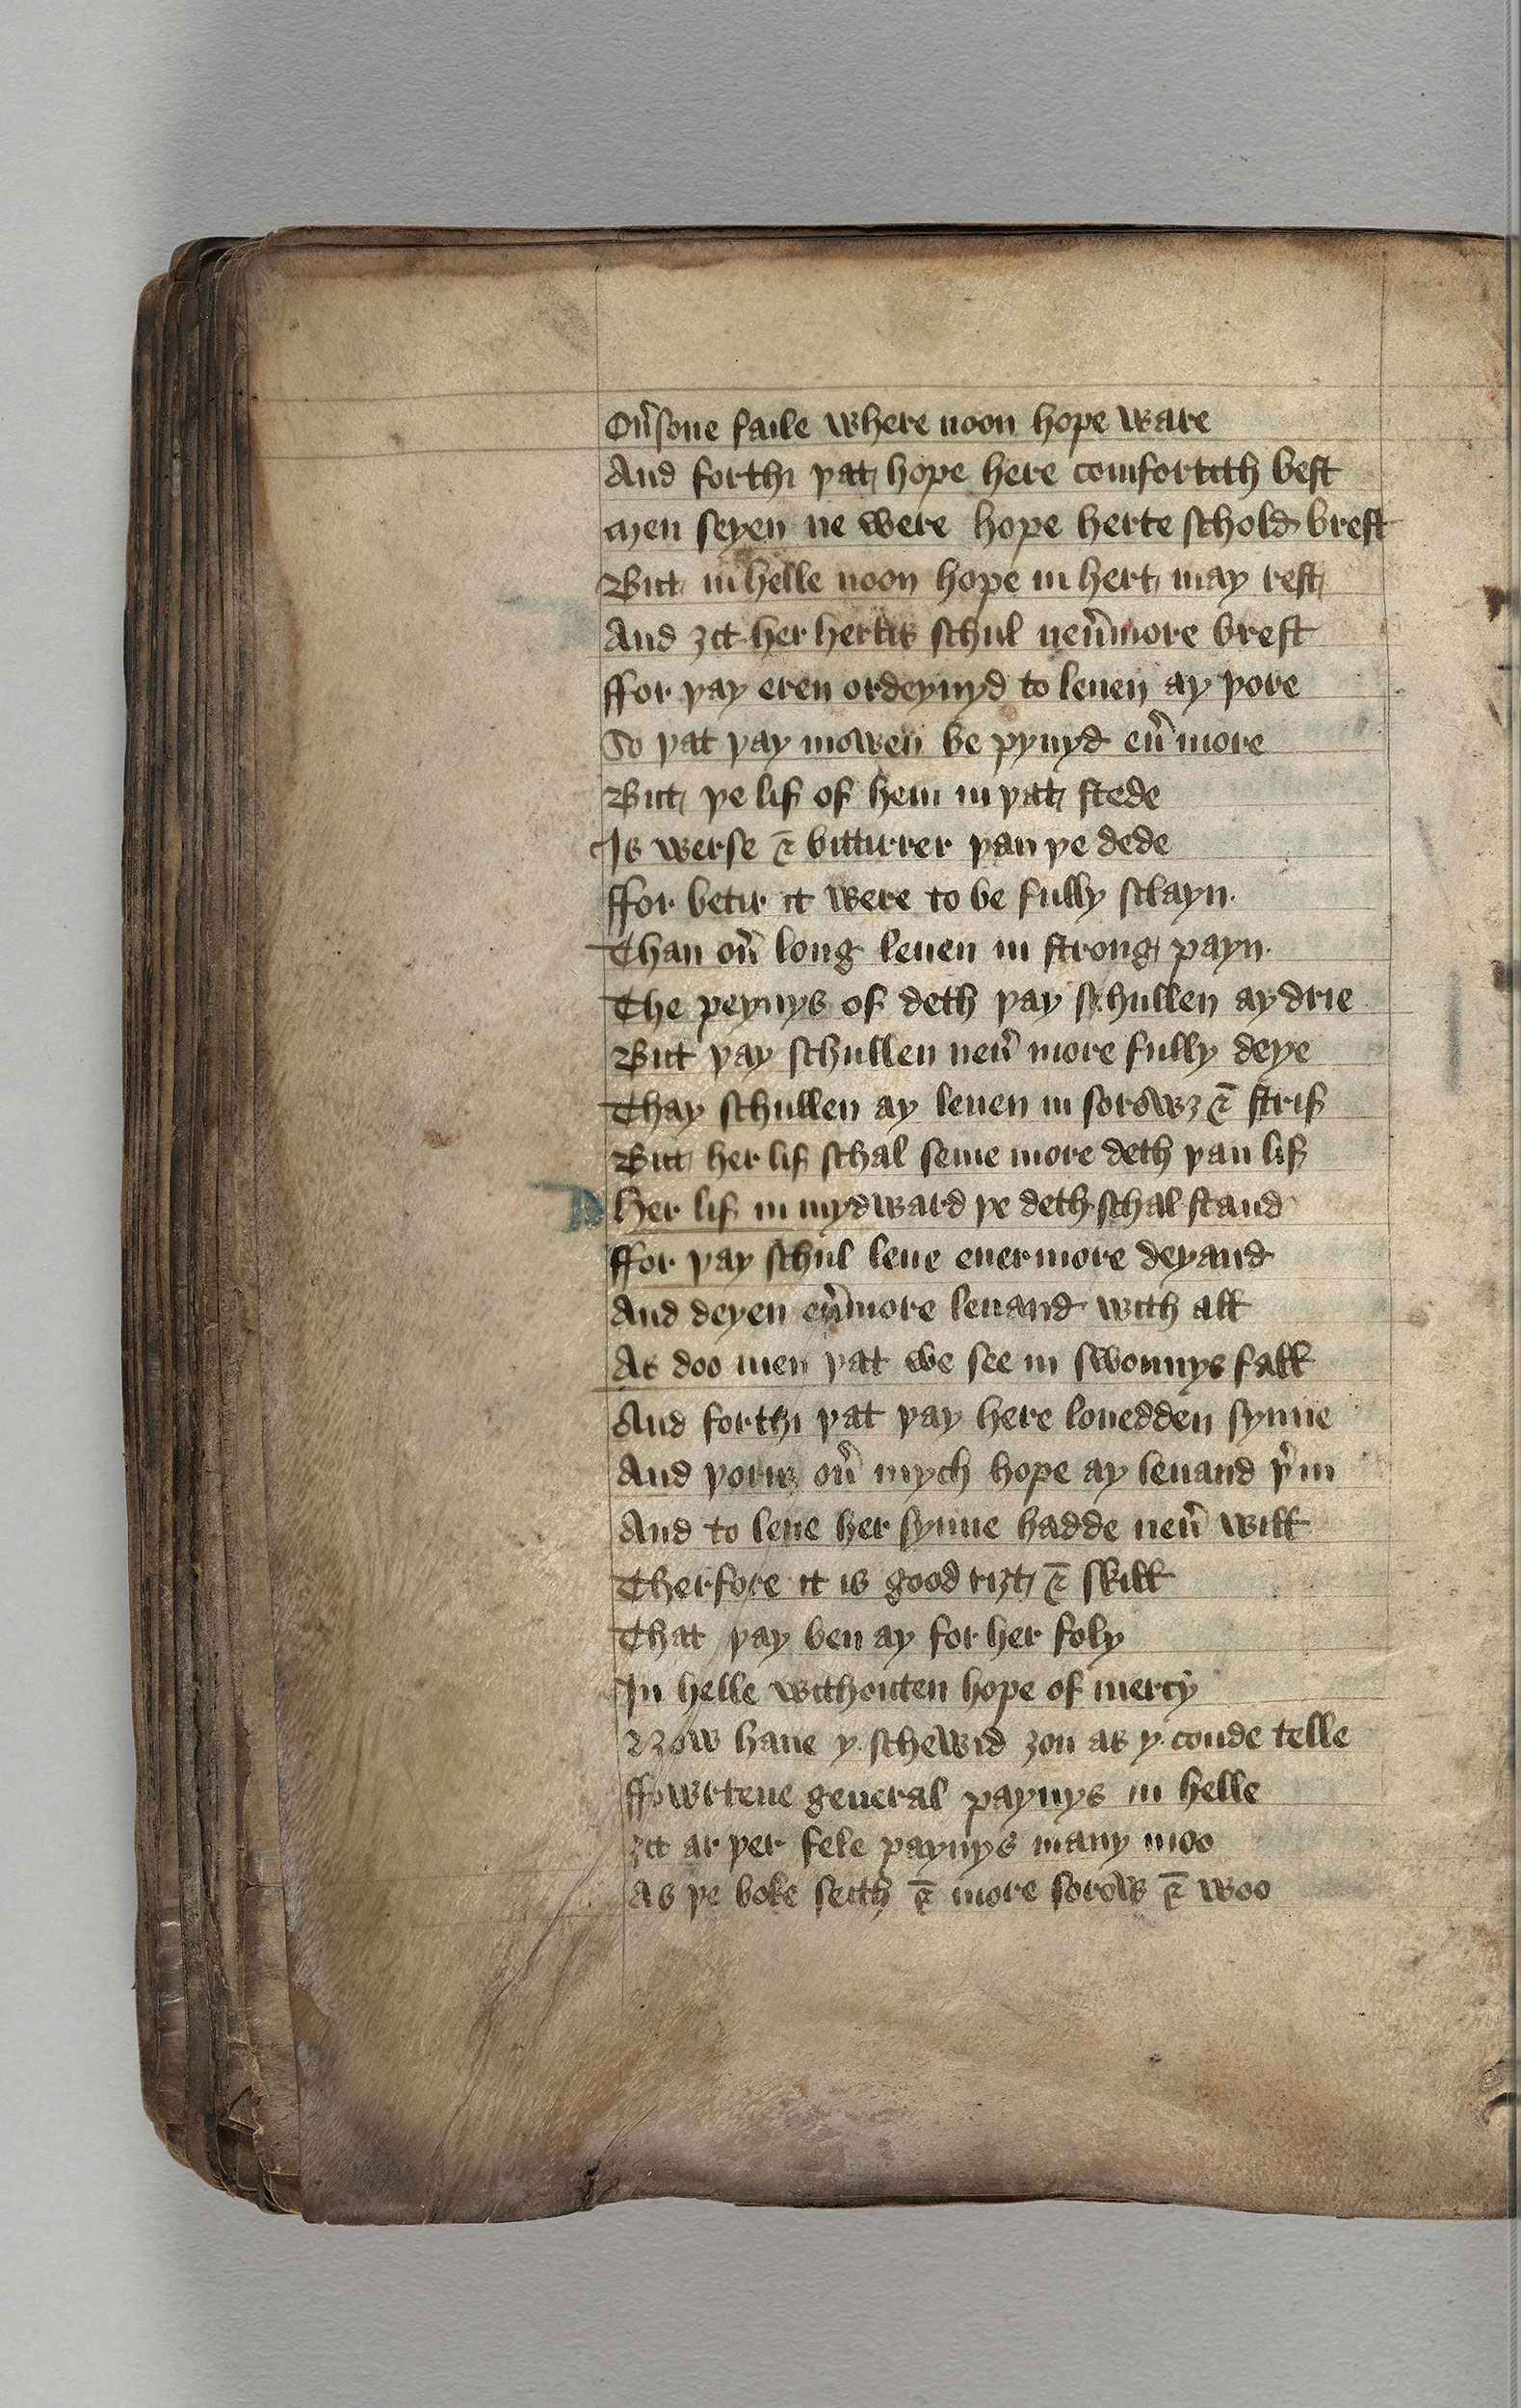 Oũsone faile where noon hope ware
And forthi þat hope here comfortith best
Men seyen ne were hope herte schold brest
But in helle noon hope in hert may rest
And ȝit her hertis schul neũmore brest
ffor þay eren ordeynyd to leuen ay þore
So þat þay mowen be pynyd eũ more
But þe lif of hem in þat stede
Is werse & bitturrer þan þe dede
ffor betir it were to be fully sclayn
Than oũ long leuen in strong payn
The peynys of deth þay schullen ay drie
But þay schullen neũ more fully deye
Thay schullen ay leuen in sorowȝ & strif
But her lif schal seme more deth þan lif
Her lif in mydward þe deth schal stand
ffor þay schul leue euermore deyand
And deyen eũmore leuand with all
As doo men þat we see in swonnys fall
And forthi þat þay here louedden synne
And þoruȝ oũ mych hope ay leuand þ'in
And to leue her synne hadde neũ will
Therfore it is good riȝt & skill
That þay ben ay for her foly
In helle withouten hope of mercy
Now haue y schewid ȝou as y coude telle
ffowrtene general paynys in helle
ȝit ar þer fele paynys many moo
As þe boke seith & more sorow & woo